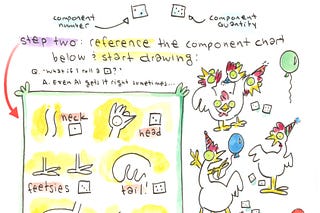 component number
component quantity
step two: reference the component chart
below & start drawing:
Q. "What if I roll a ?"
A. Even AI gets it right sometimes...
neck
head
feetsies
tail!